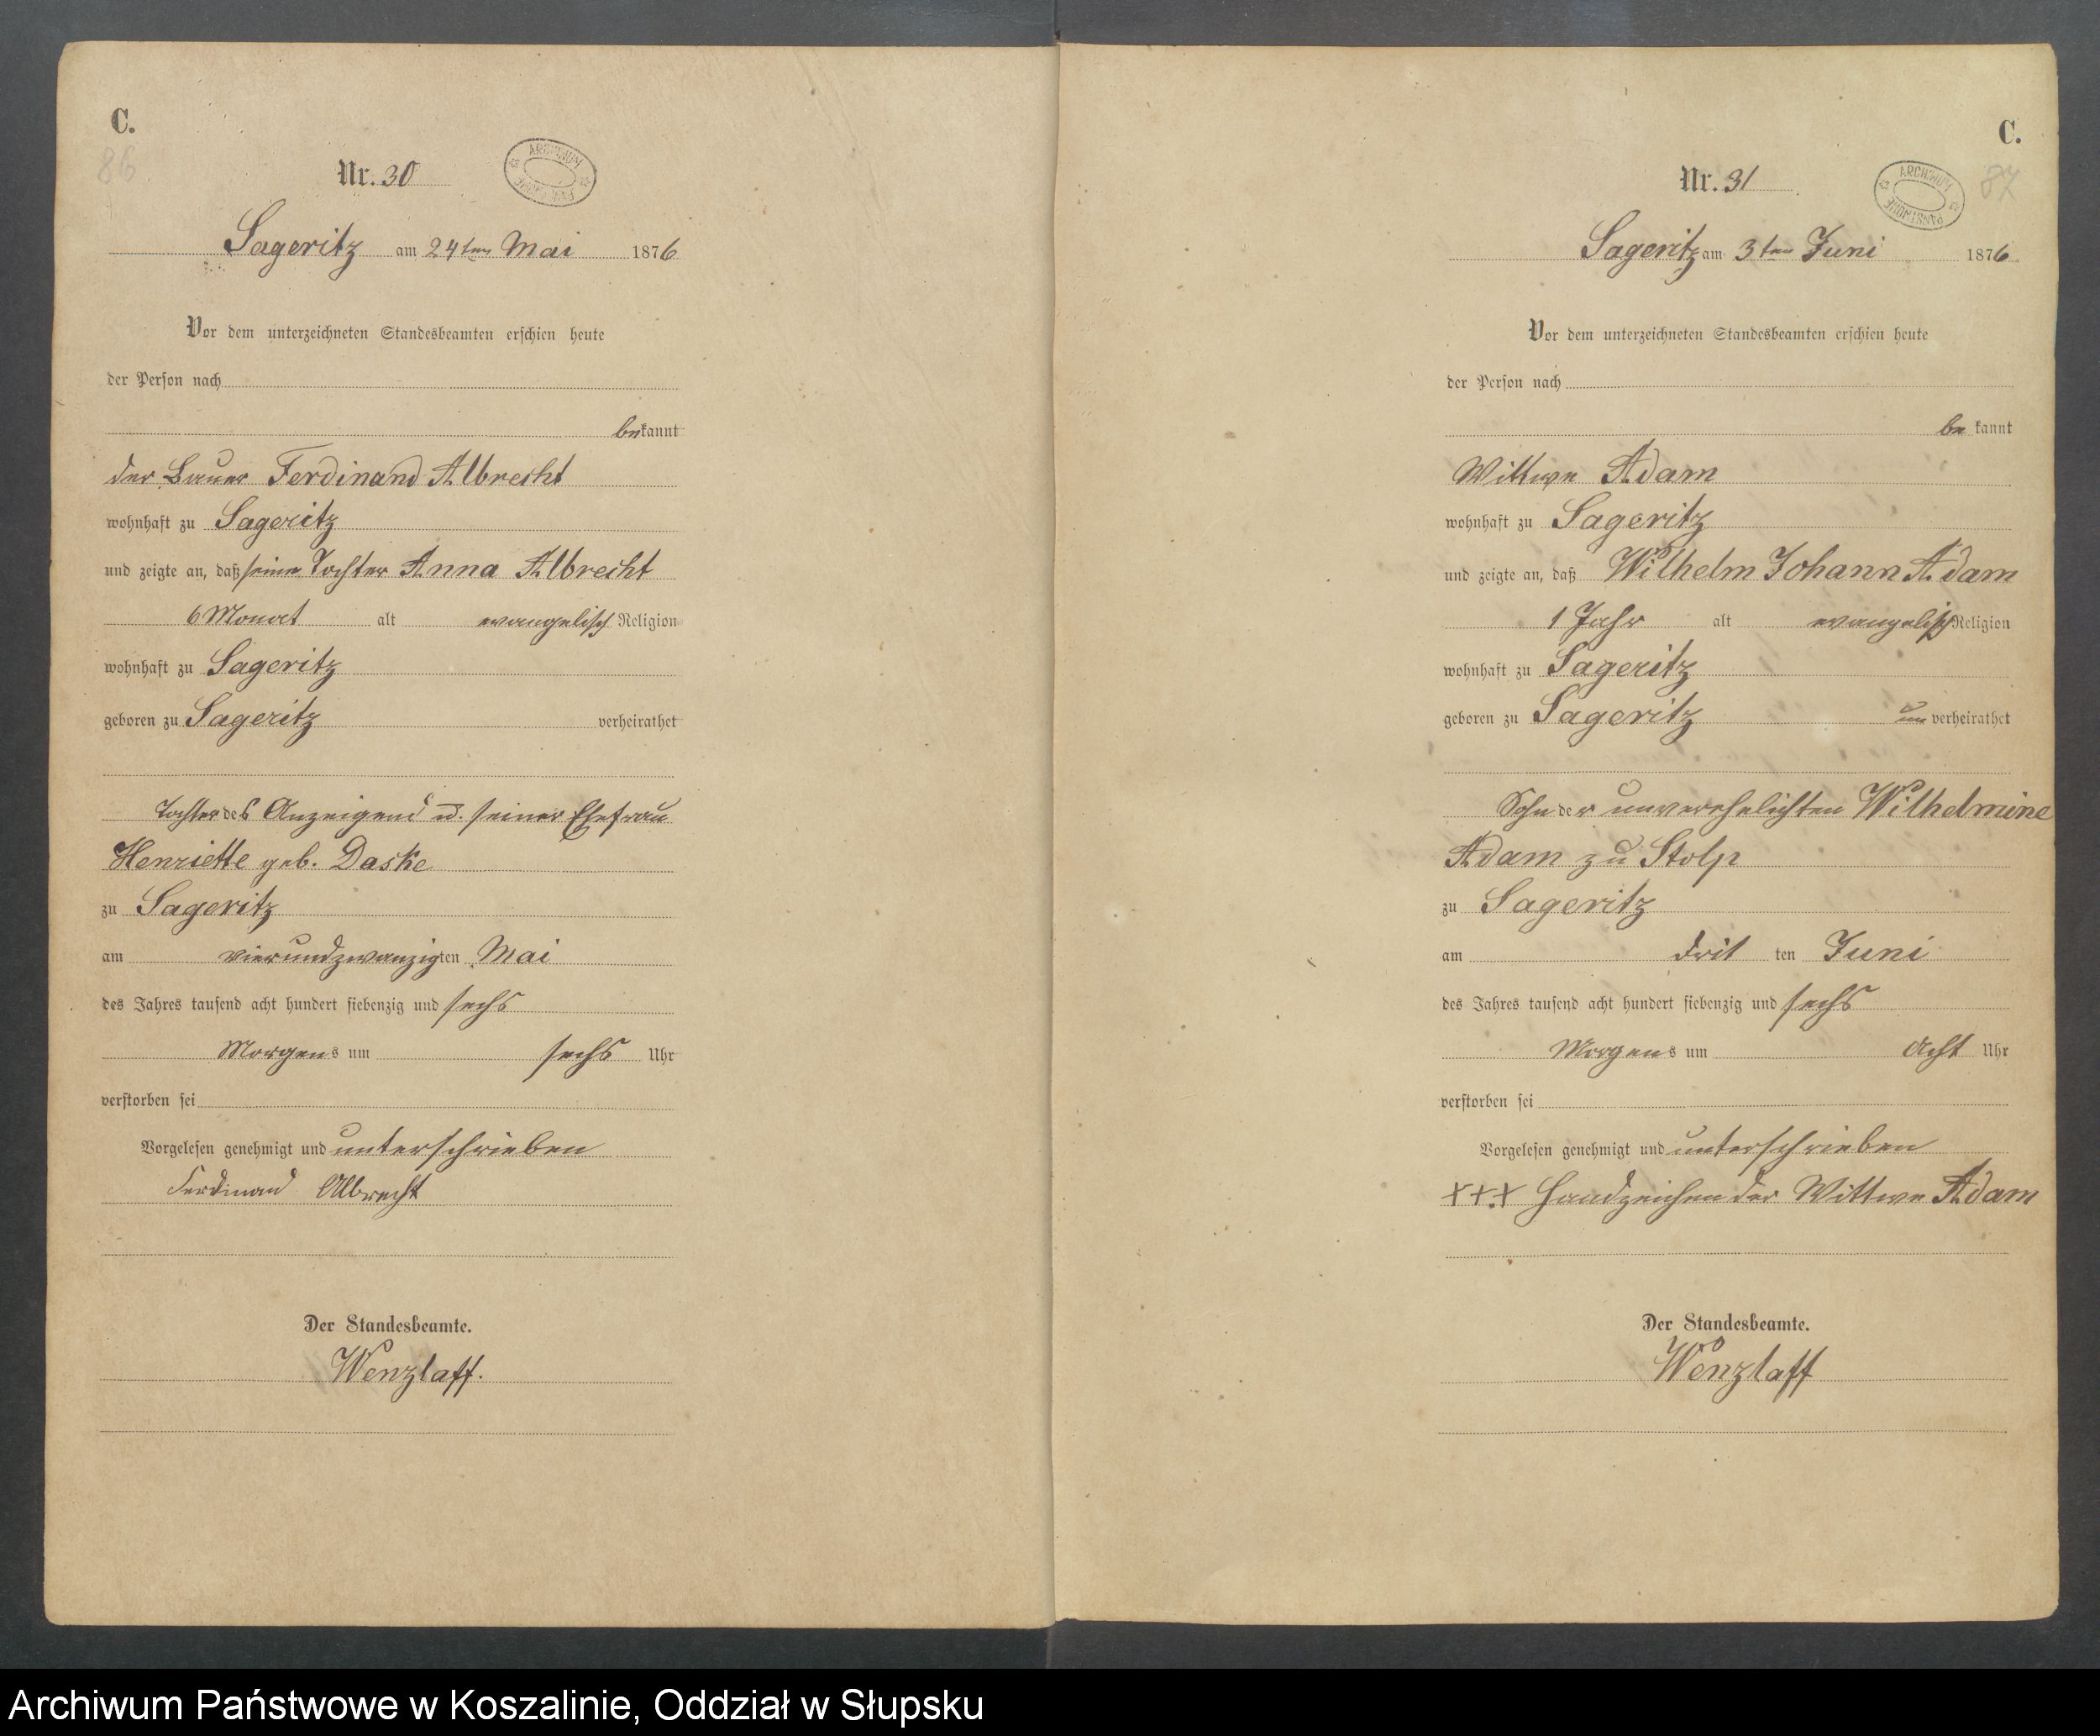 C.
86
Nr. 30
ARCHIWUM
Sageritz am 24ten Mai 1876
Vor dem unterzeichneten Standesbeamten erschien heute
der Person nach
bekannt
der Bauer Ferdinand Albrecht
wohnhaft zu Sageritz
und zeigte an, daß seine Tochter Anna Albrecht
6 Monat alt evangelisch Religion
wohnhaft zu Sageritz
geboren zu Sageritz verheirathet
Tochter des Anzeigend u. seiner Ehefrau
Henriette geb. Daske
zu Sageritz
am vierundzwanzigten Mai
des Jahres tausend acht hundert siebenzig und sechs
Morgens um sechs Uhr
verstorben sei
Vorgelesen genehmigt und unterschrieben
Ferdinand Albrecht
Der Standesbeamte.
Wenzlaff.
C.
87
Nr. 31
ARCHIWUM PAŃSTWOWE
Sageritz am 3ten Juni 1876
Vor dem unterzeichneten Standesbeamten erschien heute
der Person nach
be kannt
Wittwe Adam
wohnhaft zu Sageritz
und zeigte an, daß Wilhelm Johann Adam
1 Jahr alt evangelisch Religion
wohnhaft zu Sageritz
geboren zu Sageritz un verheirathet
Sohn der unverehelichten Wilhelmine
Adam zu Stolp
zu Sageritz
am drit ten Juni
des Jahres tausend acht hundert siebenzig und sechs
Morgens um acht Uhr
verstorben sei
Vorgelesen genehmigt und unterschrieben
+++ Handzeichen der Wittwe Adam
Der Standesbeamte.
Wenzlaff
Archiwum Państwowe w Koszalinie, Oddział w Słupsku